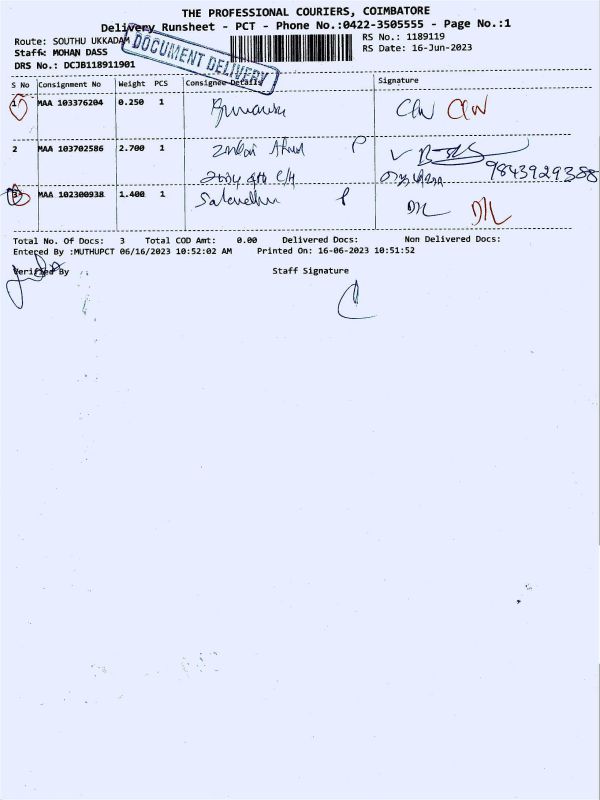 THE PROFESSIONAL COURIERS, COIMBATORE
Delivery Runsheet - PCT - Phone No.:0422-3505555 - Page No.:1
Route: SOUTHU UKKADAM
RS No.: 1189119
Staff: MOHAN DASS
RS Date: 16-Jun-2023
DRS No.: DCJB118911901
DOCUMENT DELIVERY
S No Consignment No Weight PCS Consignee Details Signature
1 MAA 103376204 0.250 1
2 MAA 103702586 2.700 1 P
9843929388
3 MAA 102300938 1.400 1
Total No. Of Docs: 3 Total COD Amt: 0.00 Delivered Docs: Non Delivered Docs:
Entered By :MUTHUPCT 06/16/2023 10:52:02 AM Printed On: 16-06-2023 10:51:52
Verified By Staff Signature